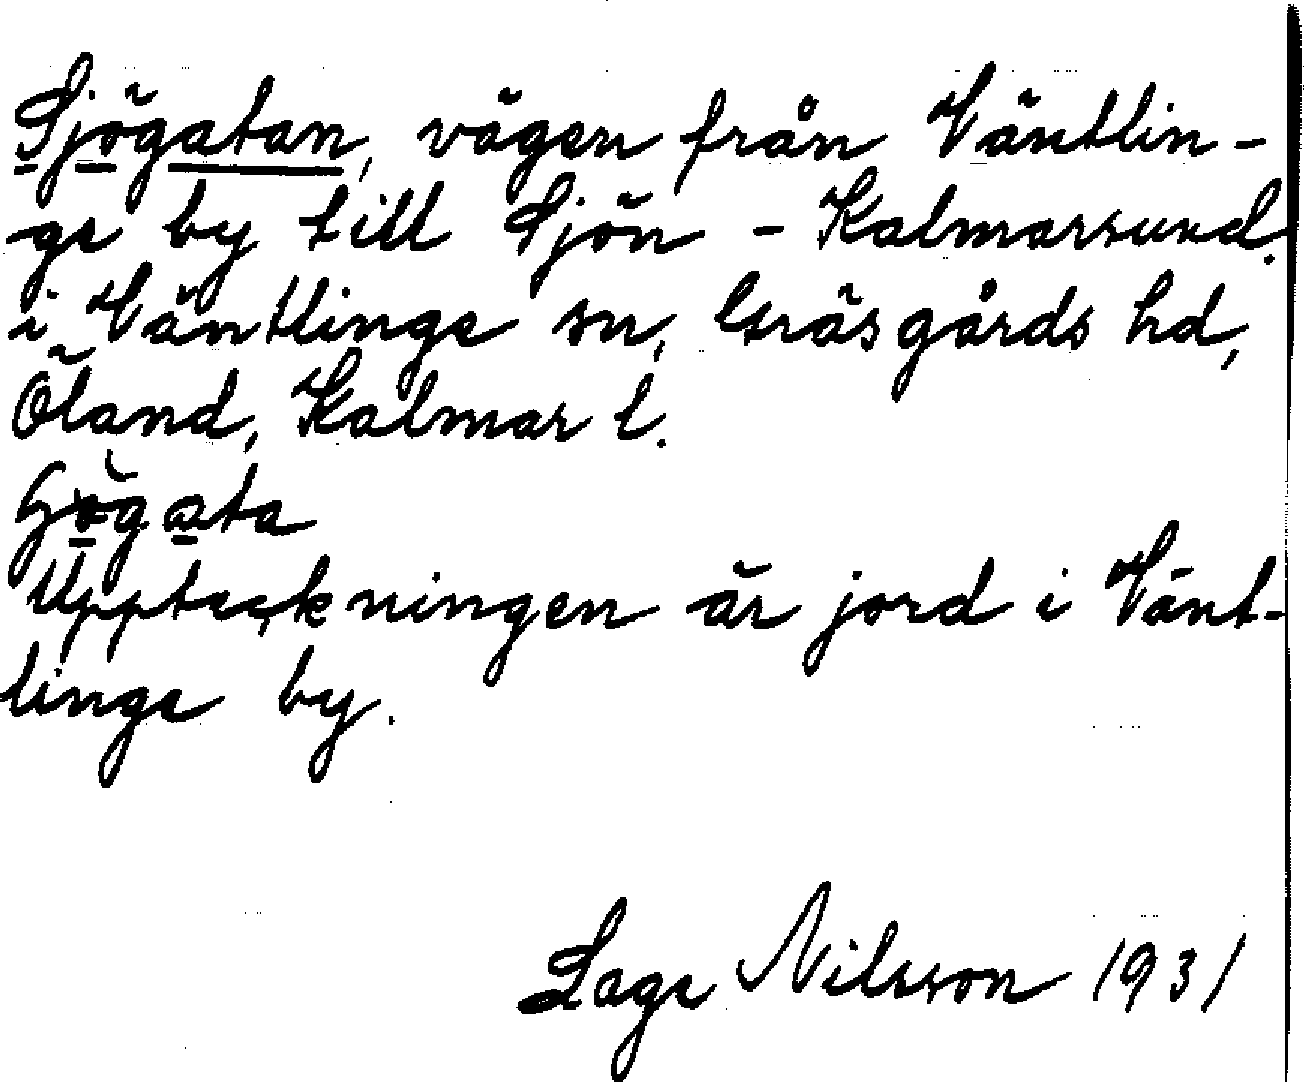 Sjögatan, vägen från Väntlin-
ge by till Sjön - Kalmarsund.
i Väntlinge sn, Gräsgårds hd,
Öland, Kalmar l.
ata
Uppteckningen är jord i Vänt-
linge by.
Lage Nilsson 1931